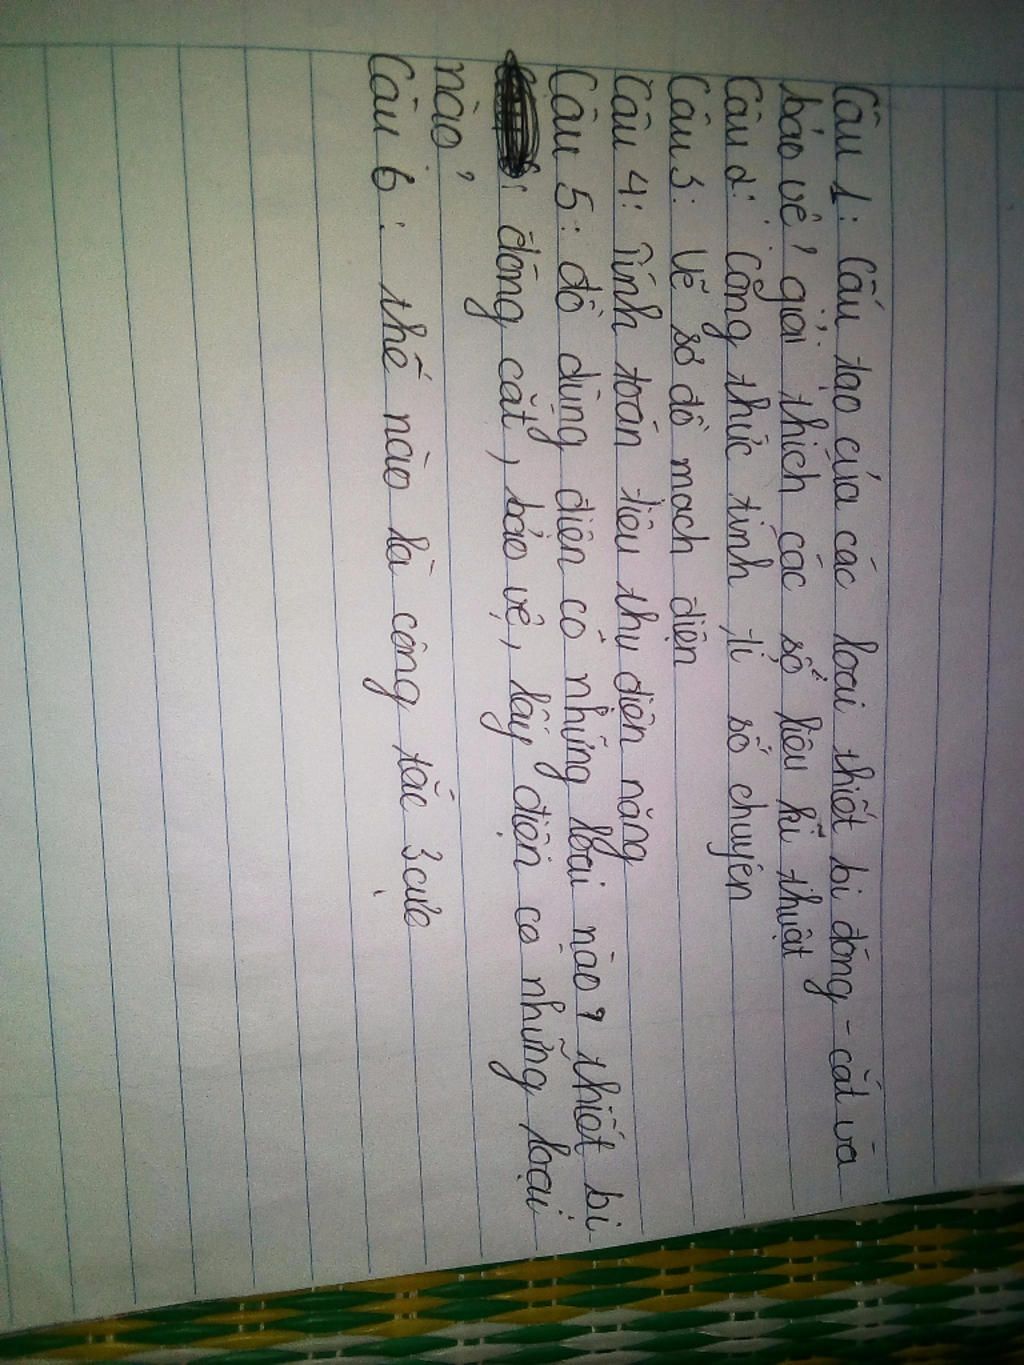 Câu 1: Cấu tạo của các loại thiết bị đóng - cắt và
bảo vệ, giải thích các số liệu kĩ thuật
Câu 2: Công thức tính tỉ số chuyền
Câu 3: Vẽ sơ đồ mạch điện
Câu 4: Tính toán tiêu thụ điện năng
Câu 5: đồ dùng điện có những loại nào? thiết bị
: đóng cắt, bảo vệ, lấy điện có những loại
nào?
Câu 6: thế nào là công tắc 3 cực